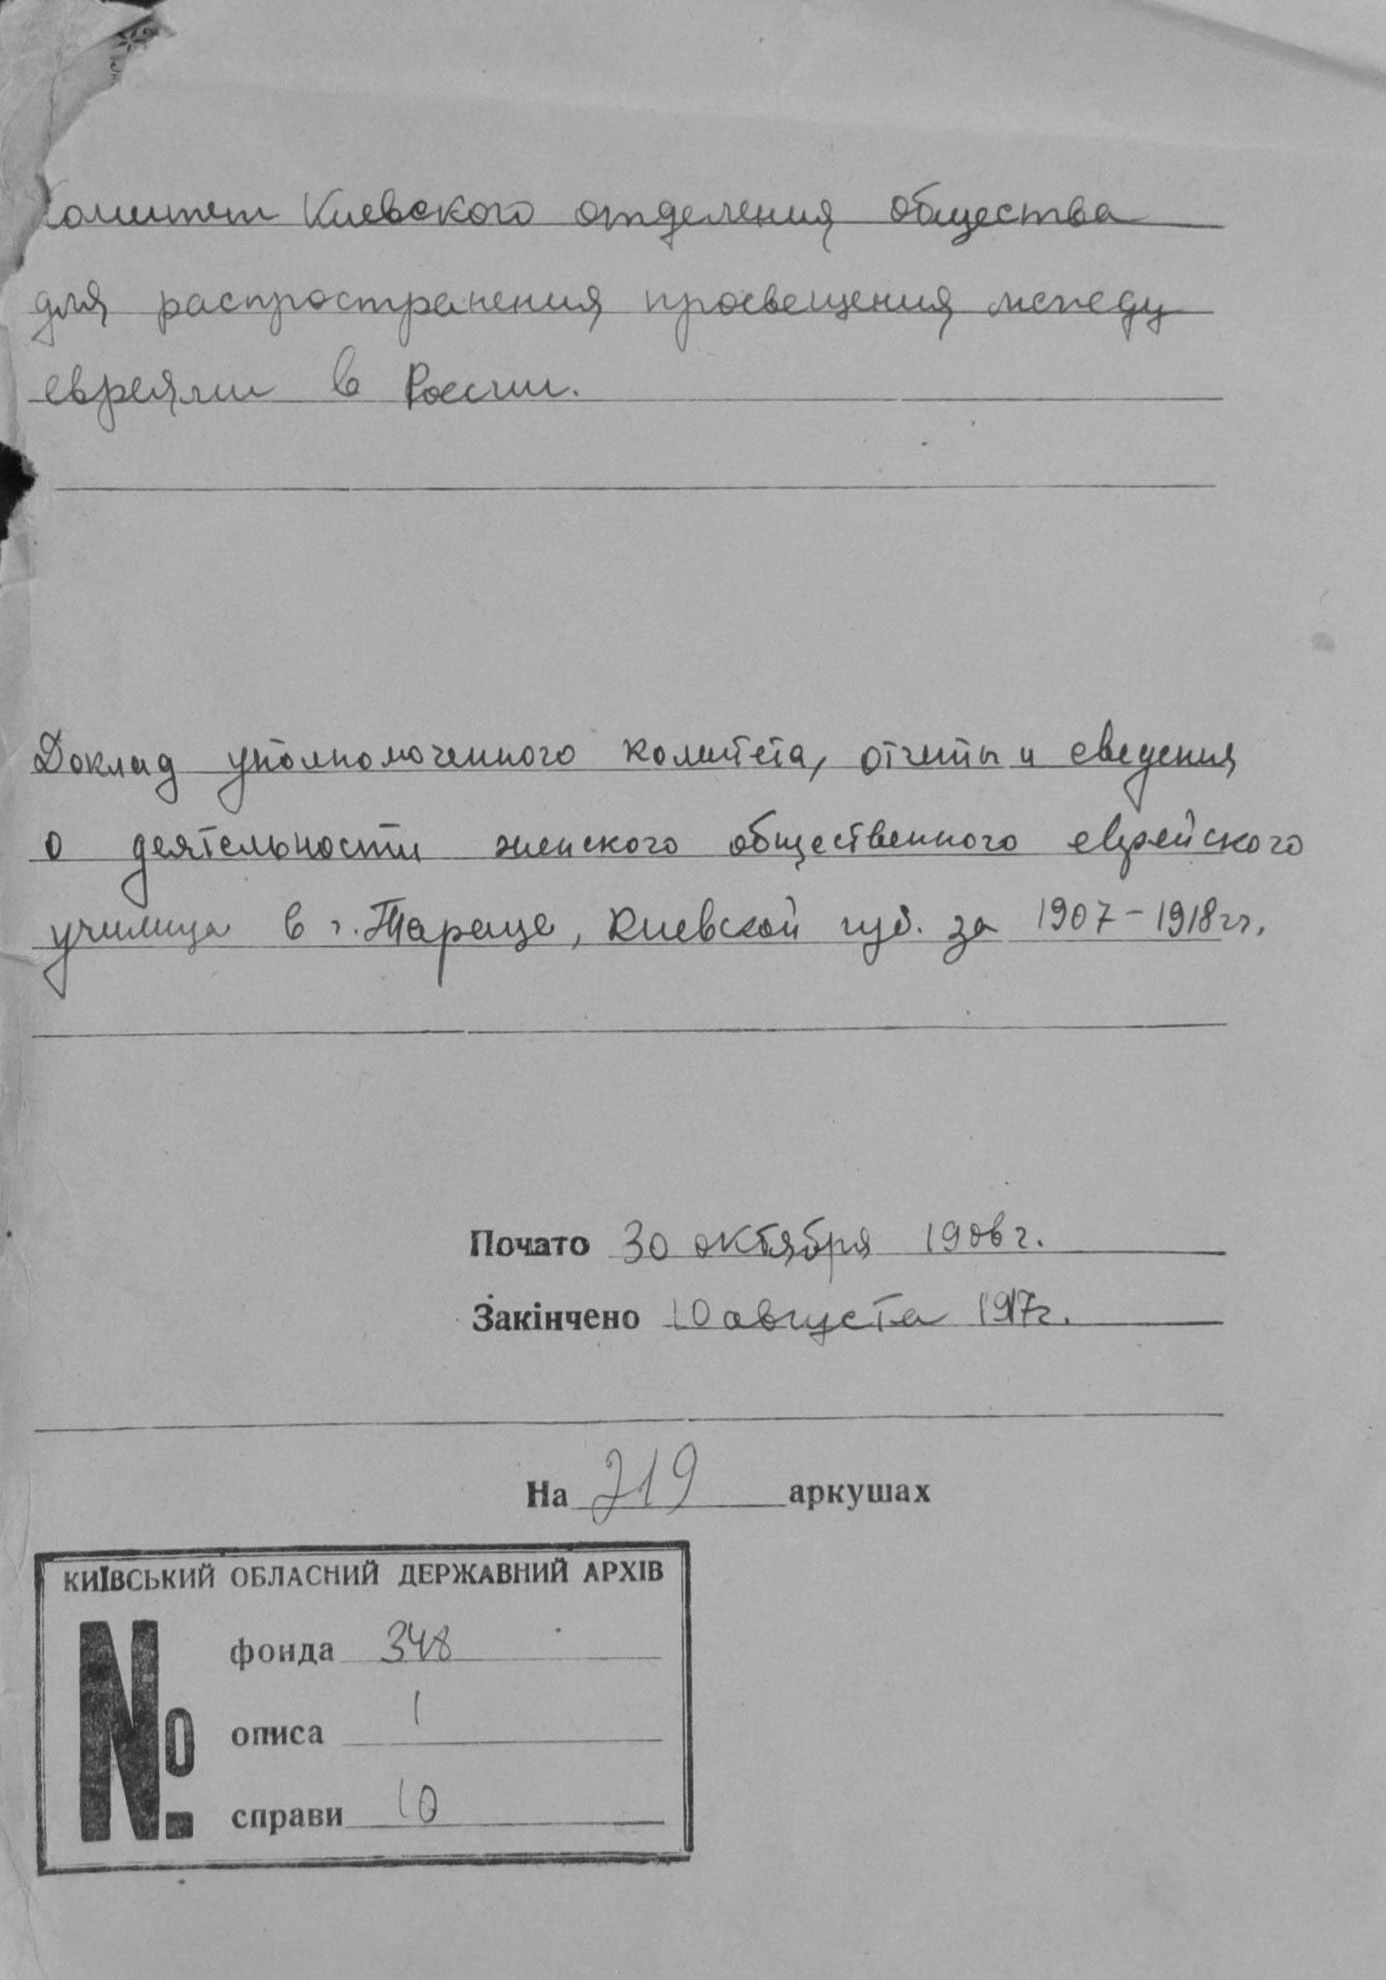 Комитет Киевского отделения общества
для распространения просвещения между
евреями в России.
Доклад уполномоченного комитета, отчеты и сведения
о деятельности женского общественного еврейского
училища в г. Тараще, Киевской губ. за 1907-1918 гг.
Почато 30 октября 1906 г.
Закінчено 10 августа 1917 г.
На 219 аркушах
КИЇВСЬКИЙ ОБЛАСНИЙ ДЕРЖАВНИЙ АРХІВ
№
фонда 348
описа 1
справи 10